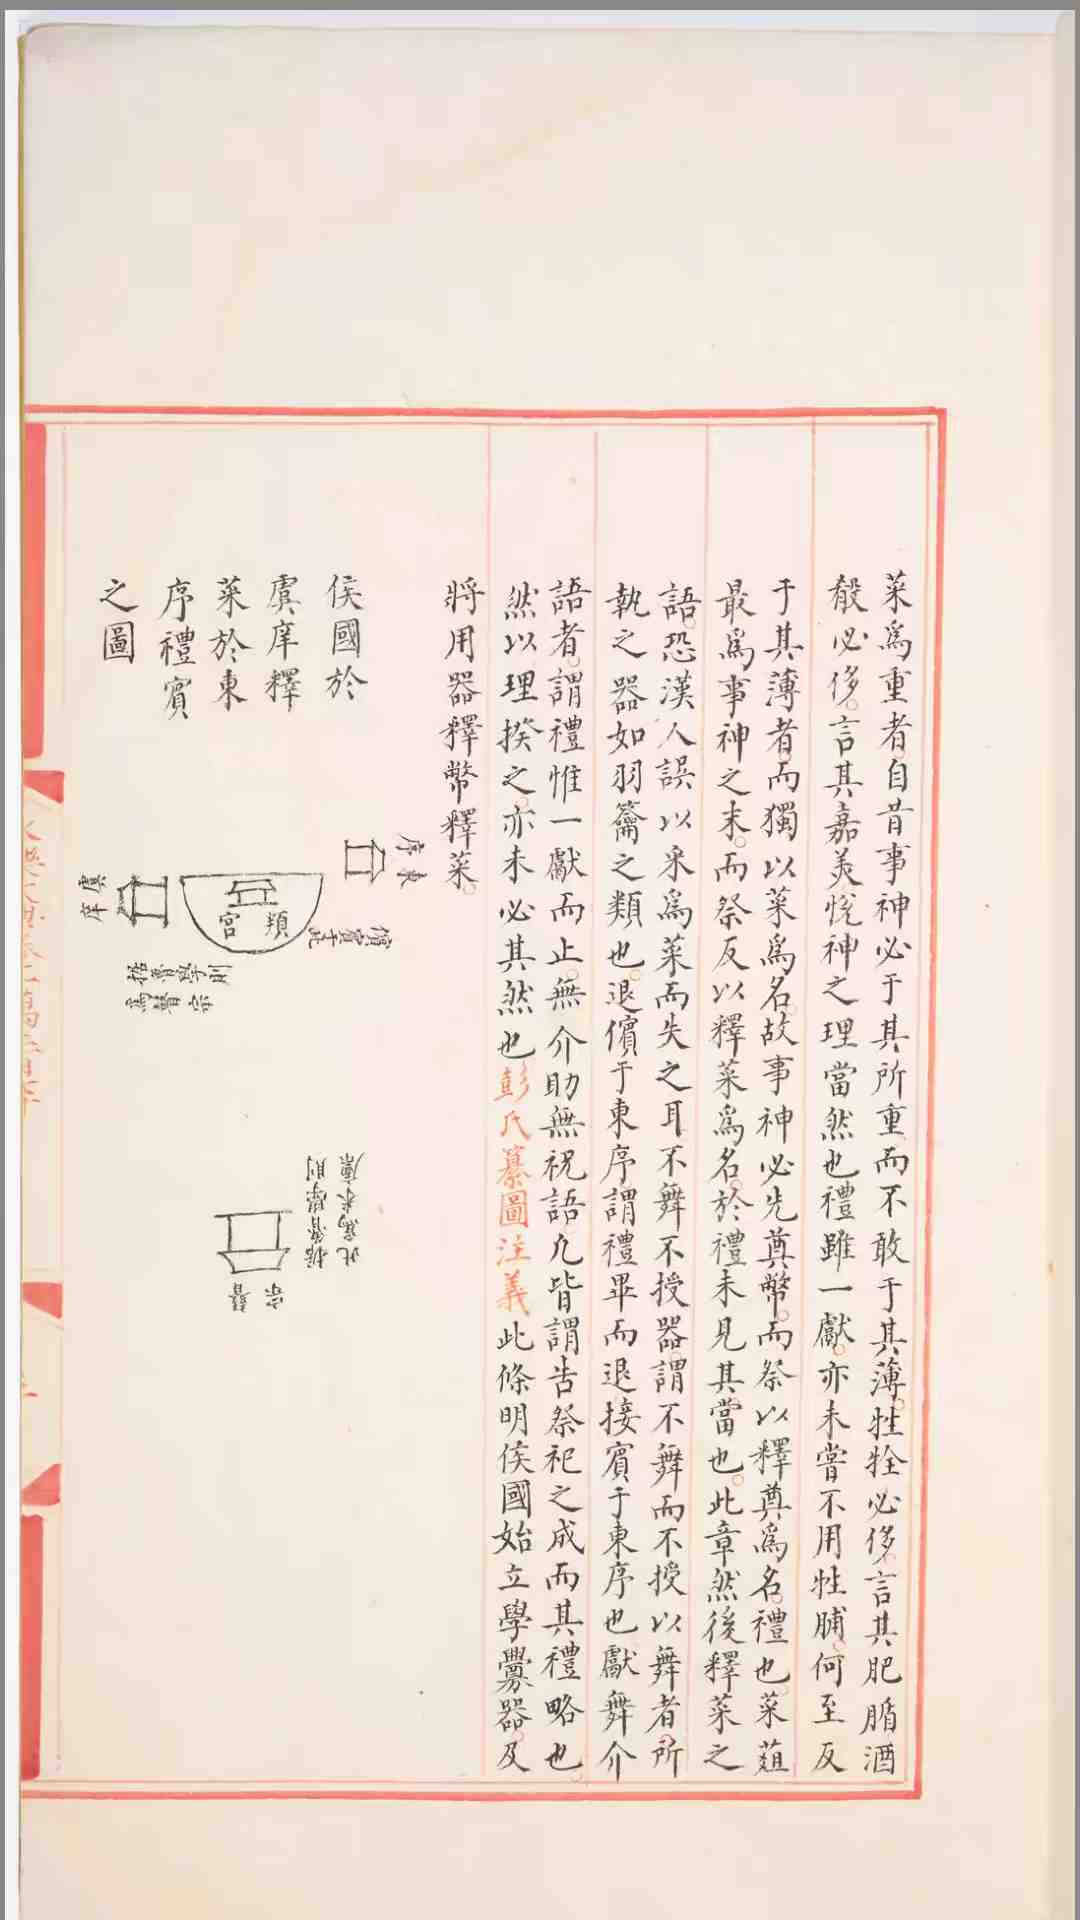 菜爲重者自昔事神必于其所重而不敢于其薄牲牷必侈言其肥腯酒
殽必侈言其嘉美悅神之理當然也禮雖一獻亦未嘗不用牲脯何至反
于其薄者而獨以菜爲名故事神必先奠幣而祭以釋奠爲名禮也菜葅
最爲事神之末而祭反以釋菜爲名於禮未見其當也此章然後釋菜之
語恐漢人誤以釆爲菜而失之耳不舞不授器謂不舞而不授以舞者所
執之器如羽籥之類也退儐于東序謂禮畢而退接賓于東序也獻舞介
語者謂禮惟一獻而止無介助無祝語凡皆謂告祭祀之成而其禮略也
然以理揆之亦未必其然也彭氏纂圖注義此條明侯國始立學釁器及
將用器釋幣釋菜
侯國於
虞庠釋
菜於東
序禮賓
之圖
東序
儐賓于此
頖宮
虞庠
據魯學則
爲瞽宗
據魯學則
此爲米廩
瞽宗